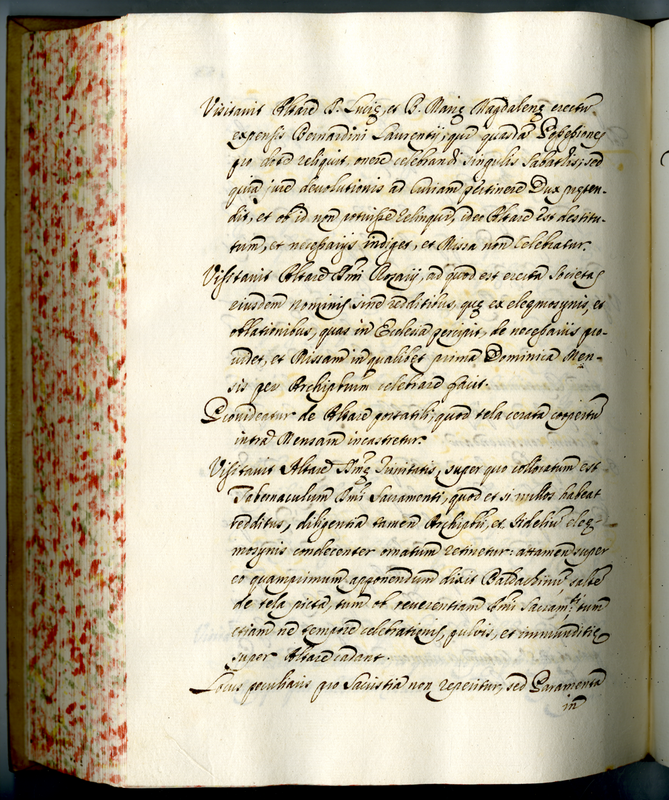 Visitavit Altare B. Lucię, et B. Marię Magdalenę erectũ
expensis Bernardini Laurentij; qui quasdã Possessiones
pro dote reliquit, onere celebrandi singulis Sabathis; sed
quia jure devolutionis ad Curiam pertinere Dux pręten-
dit, et ob id non potuisse relinqui, ideo Altare est destitu-
tum, et necessarijs indiget, et Missa non celebratur.
Visitavit Altare Smi Rosarij, ad quod est erecta Societas
eiusdem nominis sine redditibus, quę ex elęmosynis, et
oblationibus, quas in Ecclesia percipit, de necessarijs pro-
videt, et Missam in qualibet prima Dominica Men-
sis per Archiptrum celebrare facit.
Provideatur de Altare portatili, quod tela cerata coopertũ
intra Mensam incastretur.
Visitavit Altare Smę Trinitatis, super quo collocatum est
Tabernaculum Smi Sacramenti, quod et si nullos habeat
redditus, diligentia tamen Archiptri, et fidelium elę-
mosynis condecenter ornatum retinetur: attamen super
eo quamprimum apponendum dixit Baldachinũ saltẽ
de tela picta, tum ob reverentiam Smi Sacramti, tum
etiam ne tempore celebrationis, pulvis, et immunditię
super Altare cadant.
Locus peculiaris pro Sacristia non reperitur, sed Paramenta
in